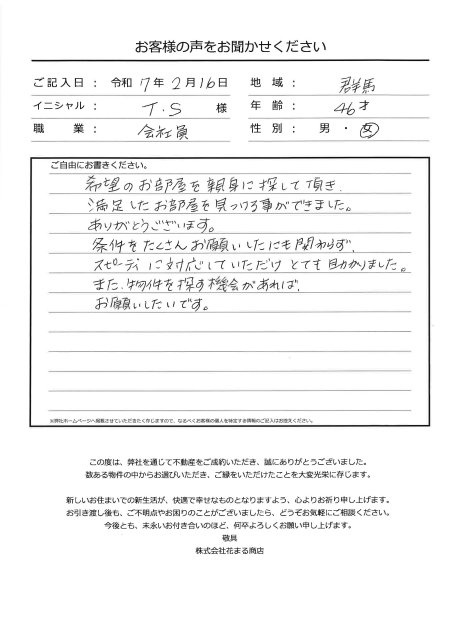 お客様の声をお聞かせください
ご記入日： 令和 7年 2月 16日 地域： 群馬
イニシャル： T.S 様 年齢： 46才
職業： 会社員 性別： 男・女
ご自由にお書きください。
希望のお部屋を親身に探して頂き、
満足したお部屋を見つける事ができました。
ありがとうございます。
条件をたくさんお願いしたにも関わらず、
スピーディに対応していただけとても助かりました。
また、物件を探す機会があれば、
お願いしたいです。
※弊社ホームページへ掲載させていただきたく存じますので、なるべくお客様の個人を特定する情報のご記入はお控えください。
この度は、弊社を通じて不動産をご成約いただき、誠にありがとうございました。
数ある物件の中からお選びいただき、ご縁をいただけたことを大変光栄に存じます。
新しいお住まいでの新生活が、快適で幸せなものとなりますよう、心よりお祈り申し上げます。
お引き渡し後も、ご不明点やお困りのことがございましたら、どうぞお気軽にご相談ください。
今後とも、末永いお付き合いのほど、何卒よろしくお願い申し上げます。
敬具
株式会社花まる商店